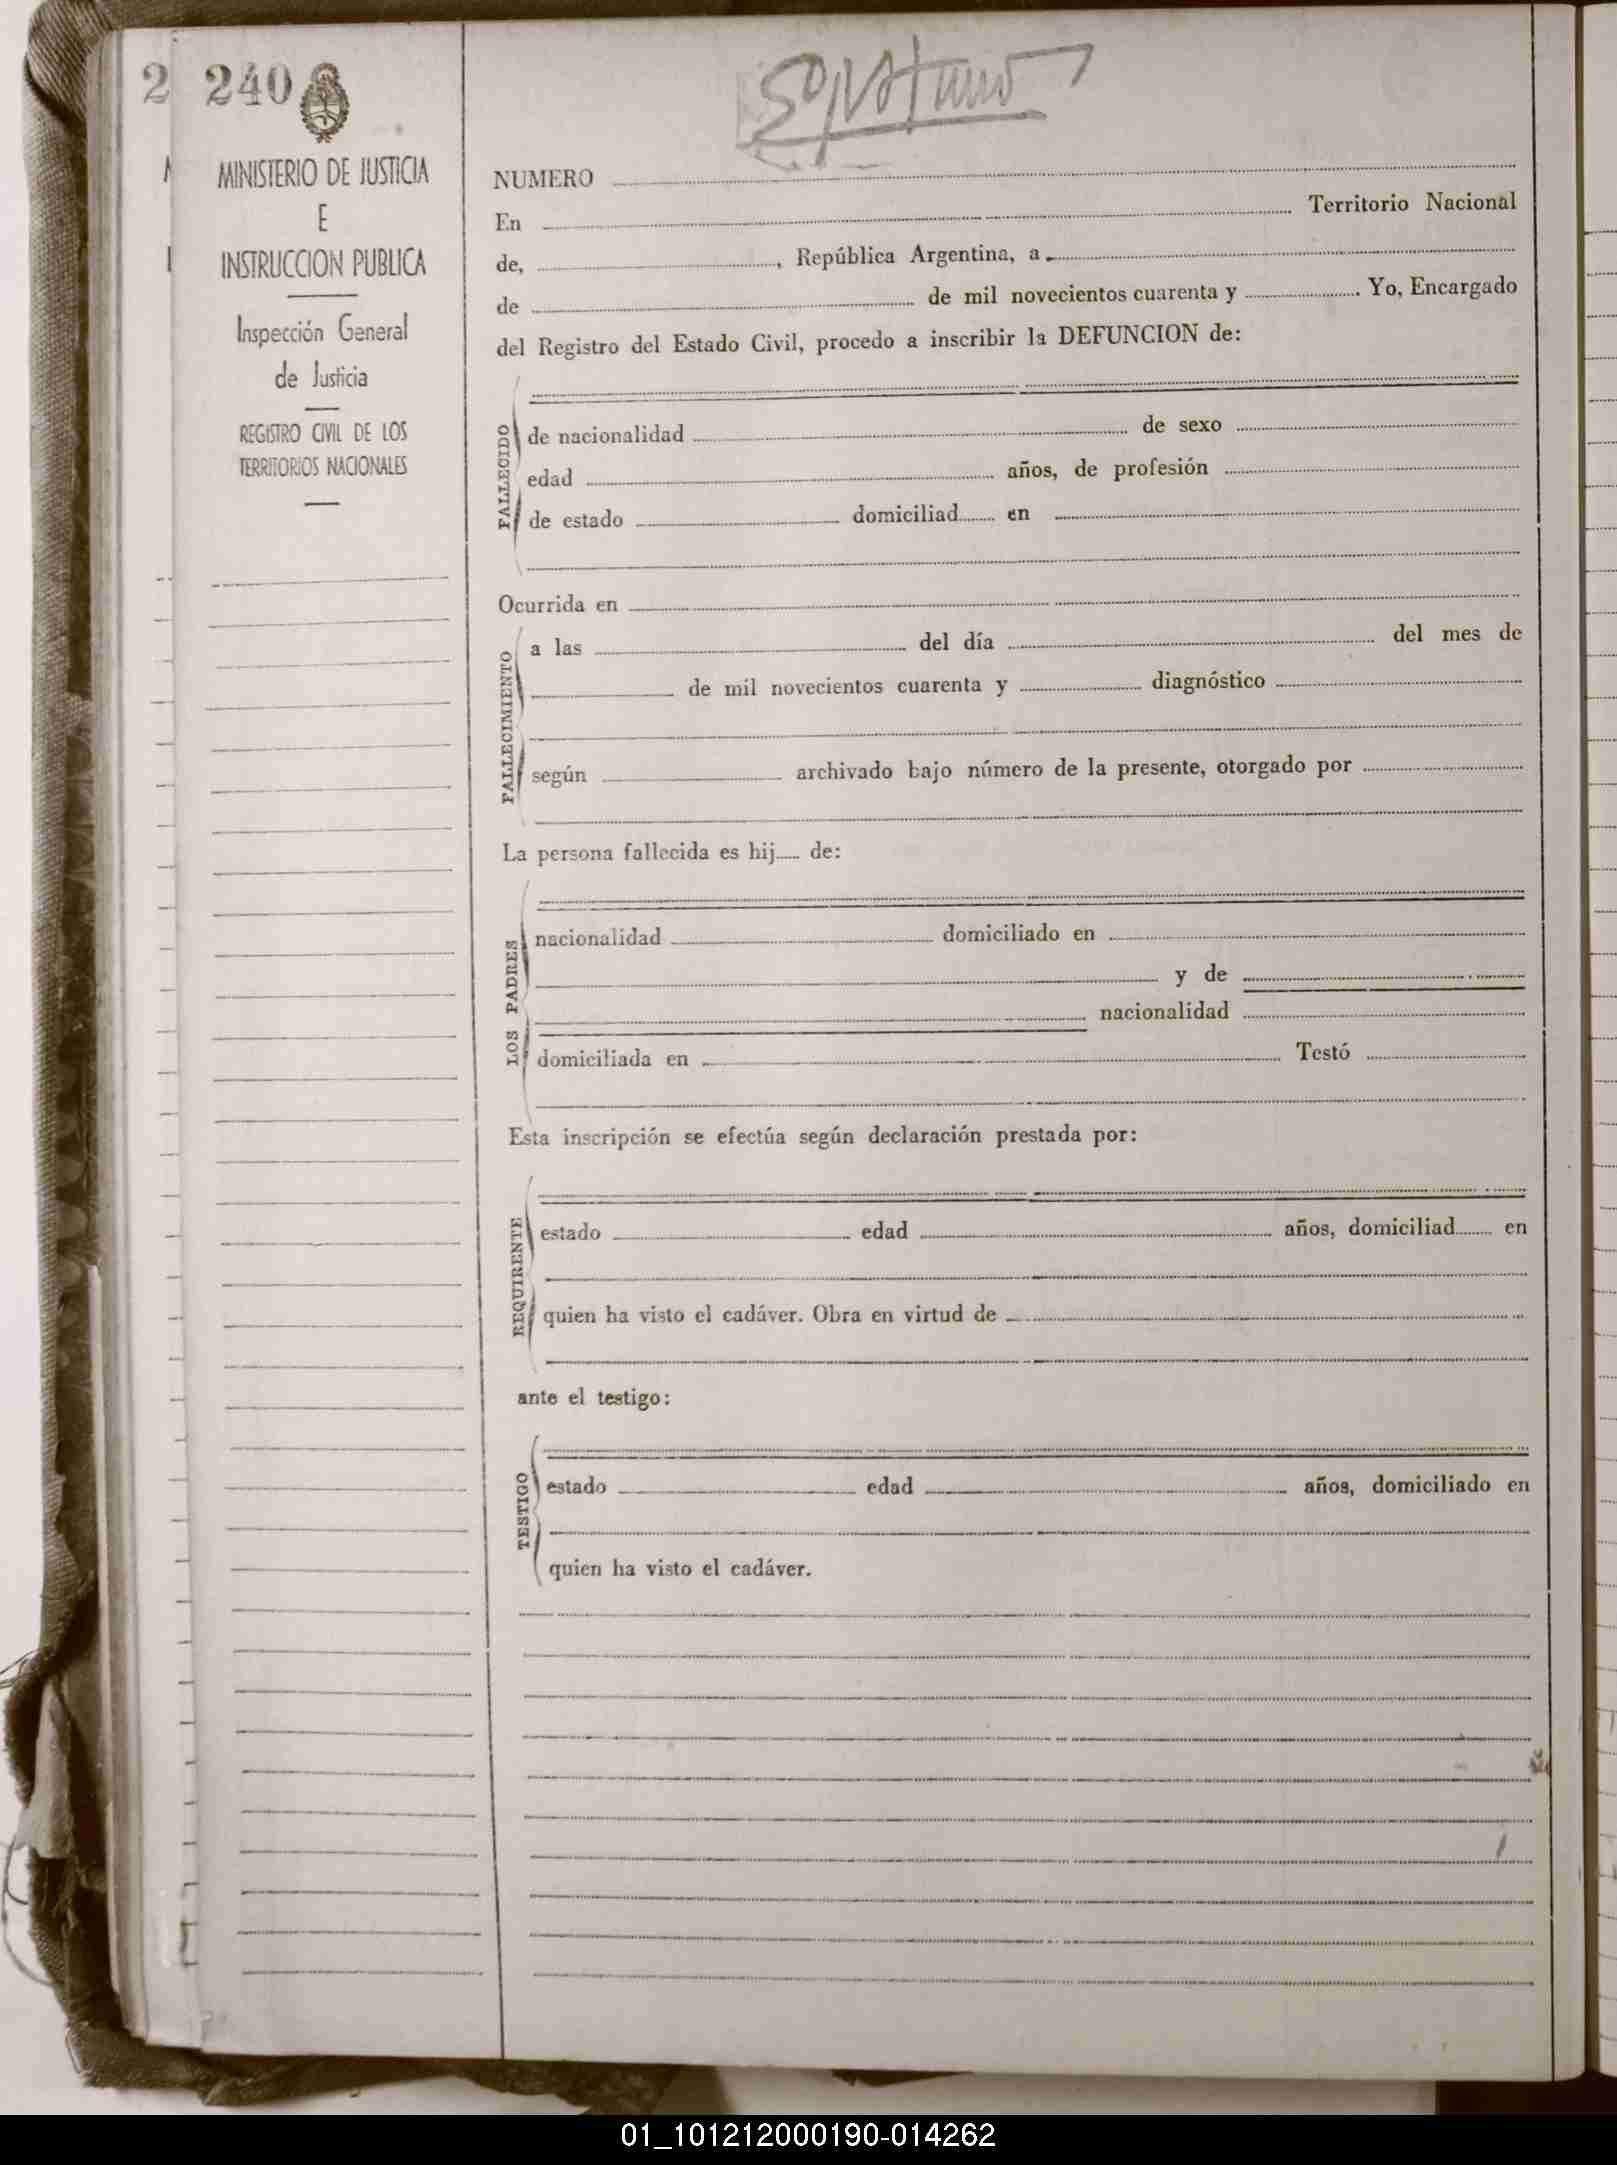 2 240
MINISTERIO DE JUSTICIA
E
INSTRUCCION PUBLICA
Inspección General
de Justicia
REGISTRO CIVIL DE LOS
TERRITORIOS NACIONALES
NUMERO
En Territorio Nacional
de, , República Argentina, a
de de mil novecientos cuarenta y . Yo, Encargado
del Registro del Estado Civil, procedo a inscribir la DEFUNCION de:
FALLECIDO
de nacionalidad de sexo
edad años, de profesión
de estado domiciliad en
Ocurrida en
FALLECIMIENTO
a las del día del mes de
de mil novecientos cuarenta y diagnóstico
según archivado bajo número de la presente, otorgado por
La persona fallecida es hij de:
LOS PADRES
nacionalidad domiciliado en
y de
nacionalidad
domiciliada en Testó
Esta inscripción se efectúa según declaración prestada por:
REQUIRENTE
estado edad años, domiciliad en
quien ha visto el cadáver. Obra en virtud de
ante el testigo:
TESTIGO
estado edad años, domiciliado en
quien ha visto el cadáver.
01_101212000190-014262